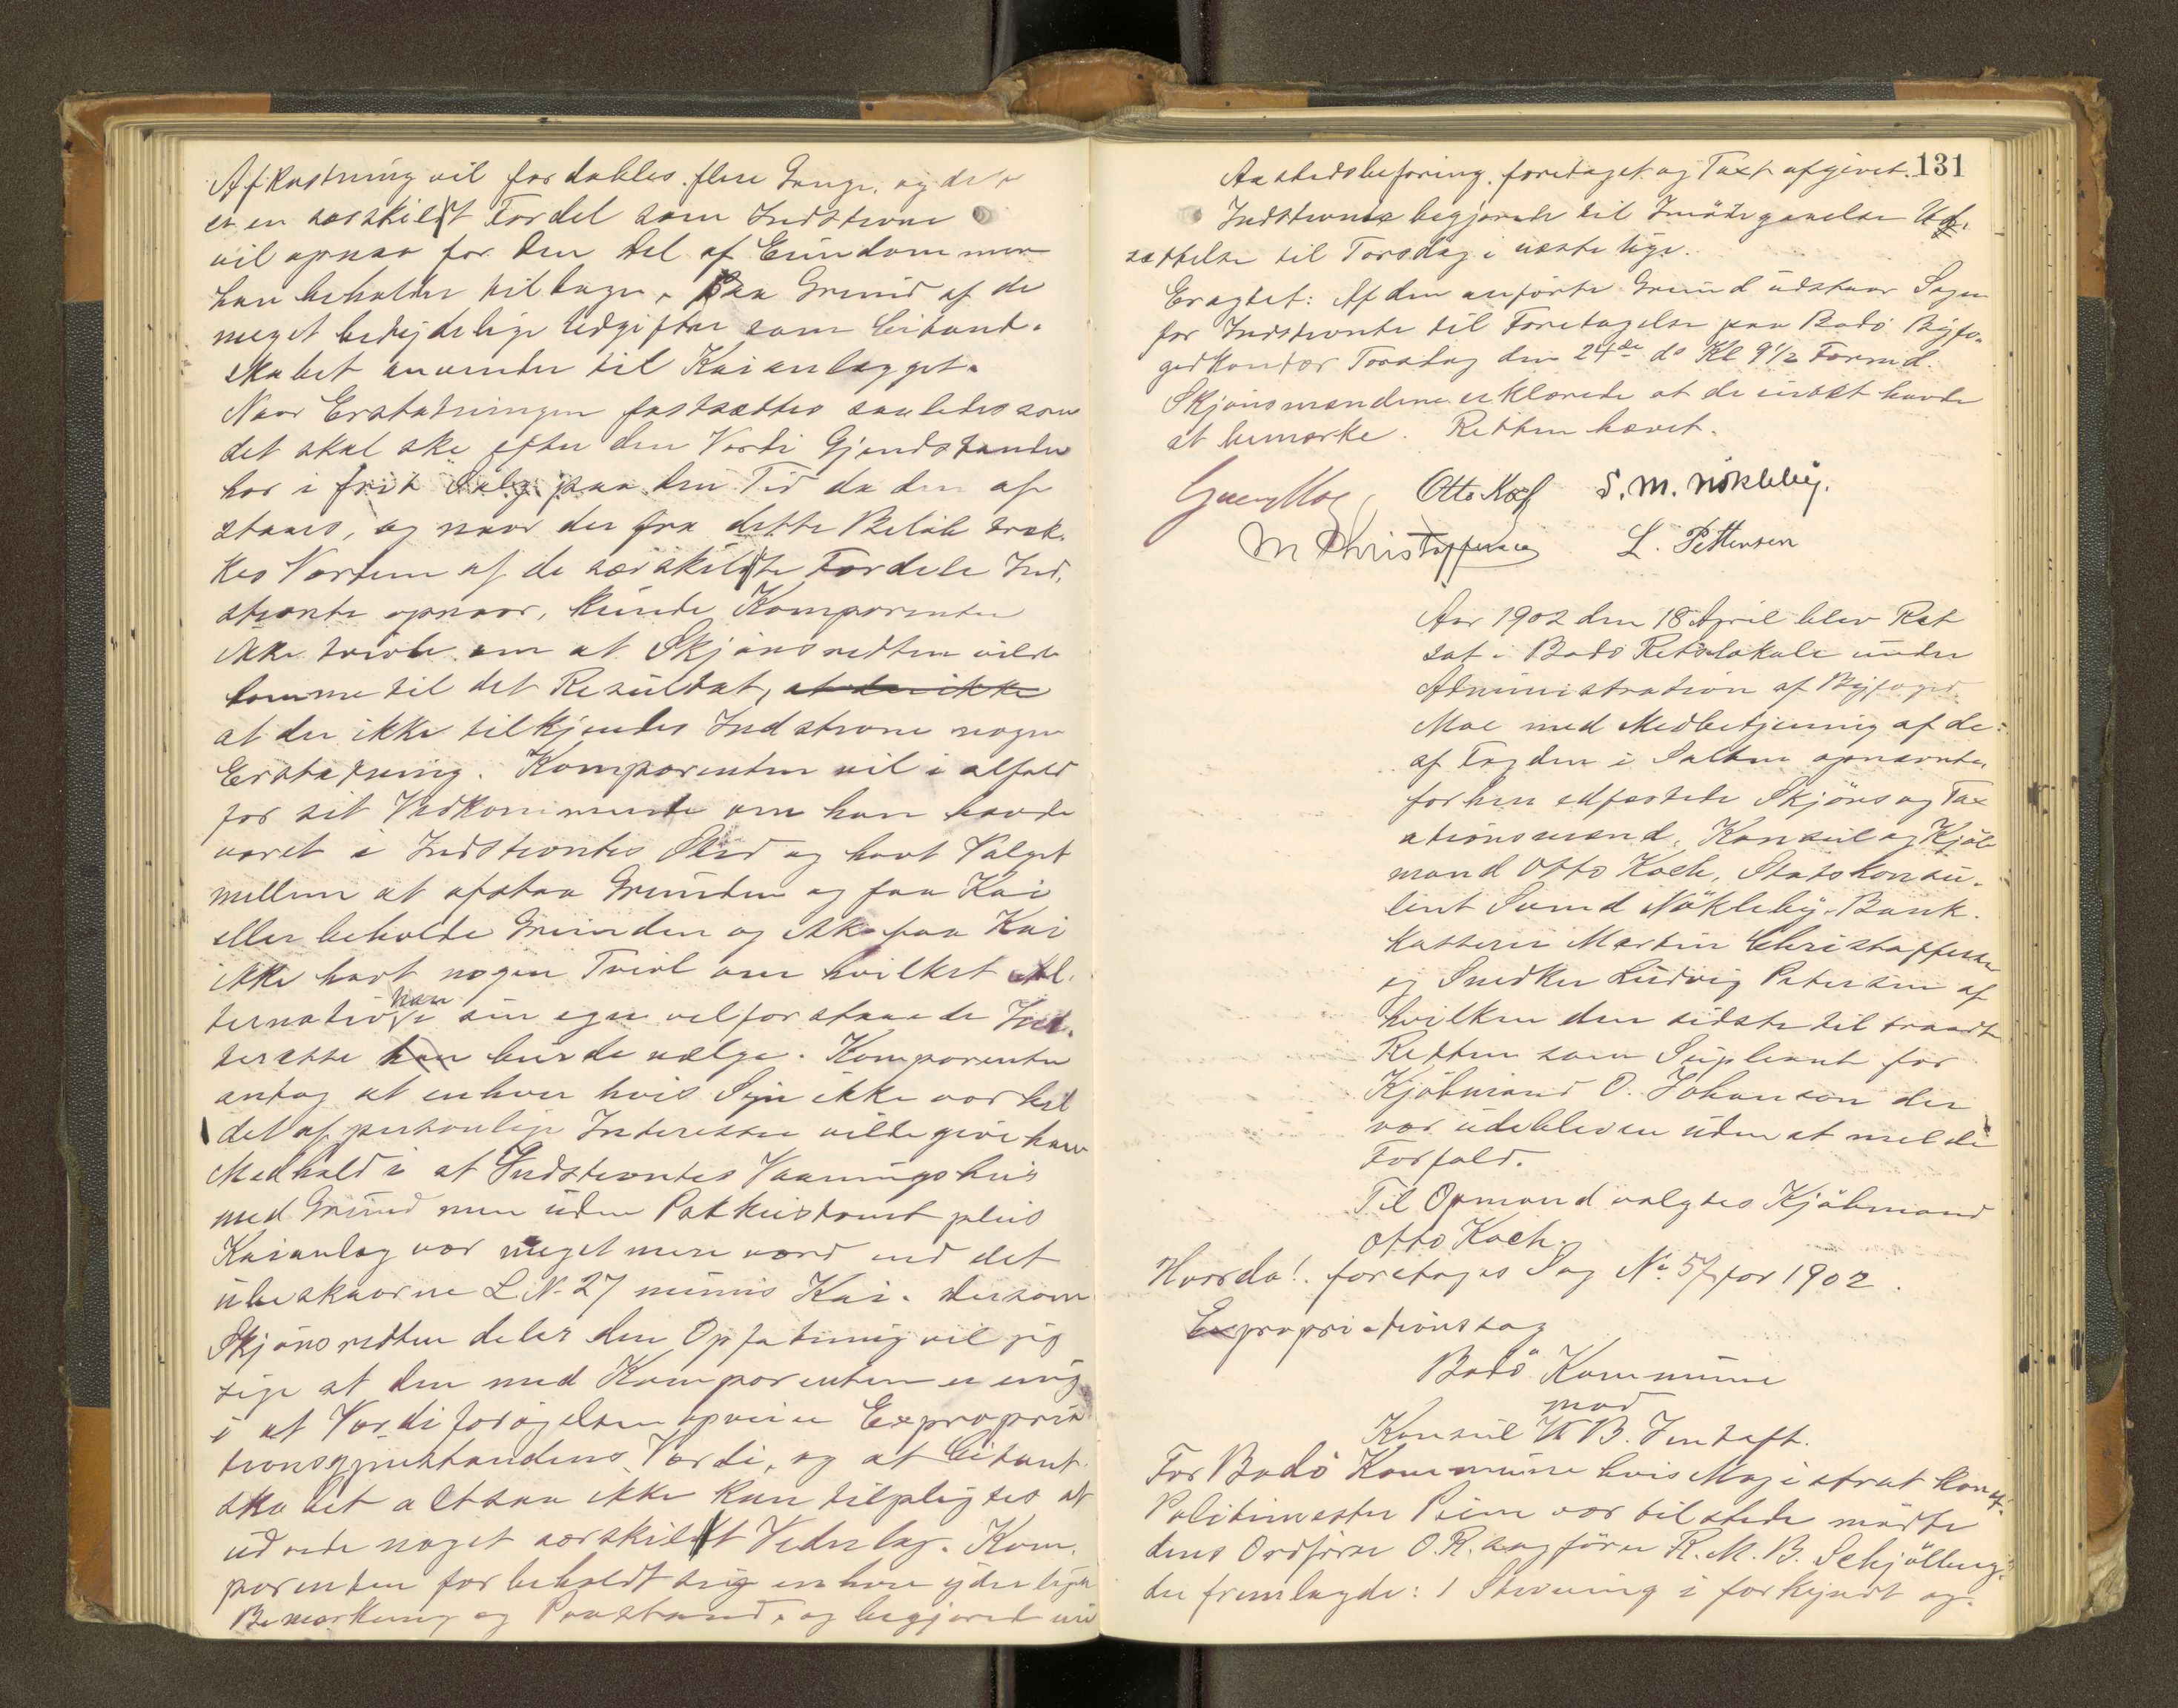 Afkastning vil fordobles flere Gange, og dette
er en særskilt Fordel som Indstevnte
vil opnaa for den Del af Eiendommen
han beholder tilbage, paa Grund af de
meget betydelige Udgifter som Citant-
skabet anvender til Kaianlægget.
Naar Erstatningen fastsættes saaledes som
det skal ske efter den Værdi Gjenstanden
har i frit Salg paa den Tid da den af
staaes, og naar der fra dette Beløb træk-
kes Værdien af de særskilte Fordele Ind-
stevnte opnaar, kunde Komparenten
ikke tvivle om at Skjønsretten vilde
komme til det Resultat, at der ikke
at der ikke tilkjendes Indstevnte nogen
Erstatning. Komparenten vil i alfald
for sit Vedkommende om han havde
været i Indstevntes Sted og havt Valget
mellem at afstaa Grunden og faa Kai
eller beholde Grunden og ikke faa Kai
ikke havt nogen Tvivl om hvilket Al-
ternativ han i sin egen velforstaaede Int-
teresse han burde vælge. Komparenten
antog at enhver hvis Syn ikke var hil
det af personlige Interesser vilde give ham
Medhold i at Indstevntes Vaaningshus
med Grund men uden Pakhustomt plus
Kaianlæg var meget mere værd end det
ubeskaarne L.N. 27 minus Kai. Dersom
Skjønsretten deler den Opfatning vil sig
sige at den med Komparenten er enig
i at Værdiforøgelsen opveier Expropria
tionsgjenstandens Værdi, og at Citant-
skabet altsaa ikke kan tilpligtes at
udrede noget særskilt Vederlag. Kom-
parenten forbeholdt sig enhver yderligere
Bemærkning og Paastand, og begjæret nu
131
Aastedsbefaring foretaget og Taxt afgivet.
Indstevnte begjærede til Imødegaaelse Ud-
sættelse til Torsdag i næste Uge.
Eragtet: Af den anførte Grund udstaar Sagen
for Indstevnte til Foretagelse paa Bodø Byfo-
gedkontor Torsdag den 24de ds Kl 9 1/2 Formd.
Skjønsmændene erklærede at de intet havde
at bemærke. Retten hævet.
Moe, Otto Koch S. M. Nökleby.
M Christoffersen L. Pettersen
Aar 1902 den 18 April blev Ret
sat i Bodø Retslokale under
Administration af Byfoged
Moe med Medbetjening af de
af Fogden i Salten opnævnte
forhen edfæstede Skjøns og Tax
ationsmænd, Konsul og Kjøb
mand Otto Koch, Statskonsu-
lent Svend Nökleby, Bank-
kasserer Martin Christoffersen
og Snedker Ludvig Petersen af
hvilken den sidste tiltraadte
Retten som Supleant for
Kjøbmand O. Johansen der
var udebleven uden at melde
Forfald.
Til Opmand valgtes Kjøbmand
Otto Koch.
Hvorda! foretages Sag No 57 for 1902.
Expropriationssag
Bodö Kommune
mod
Konsul W B. Jentoft.
For Bodö Kommune hvis Magistrat konst.
Politimester Piene var tilstede mødte
dens Ordfører O.R.sagfører R. M. B. Schjölberg
der fremlagde: 1 Stevning i forkyndt og